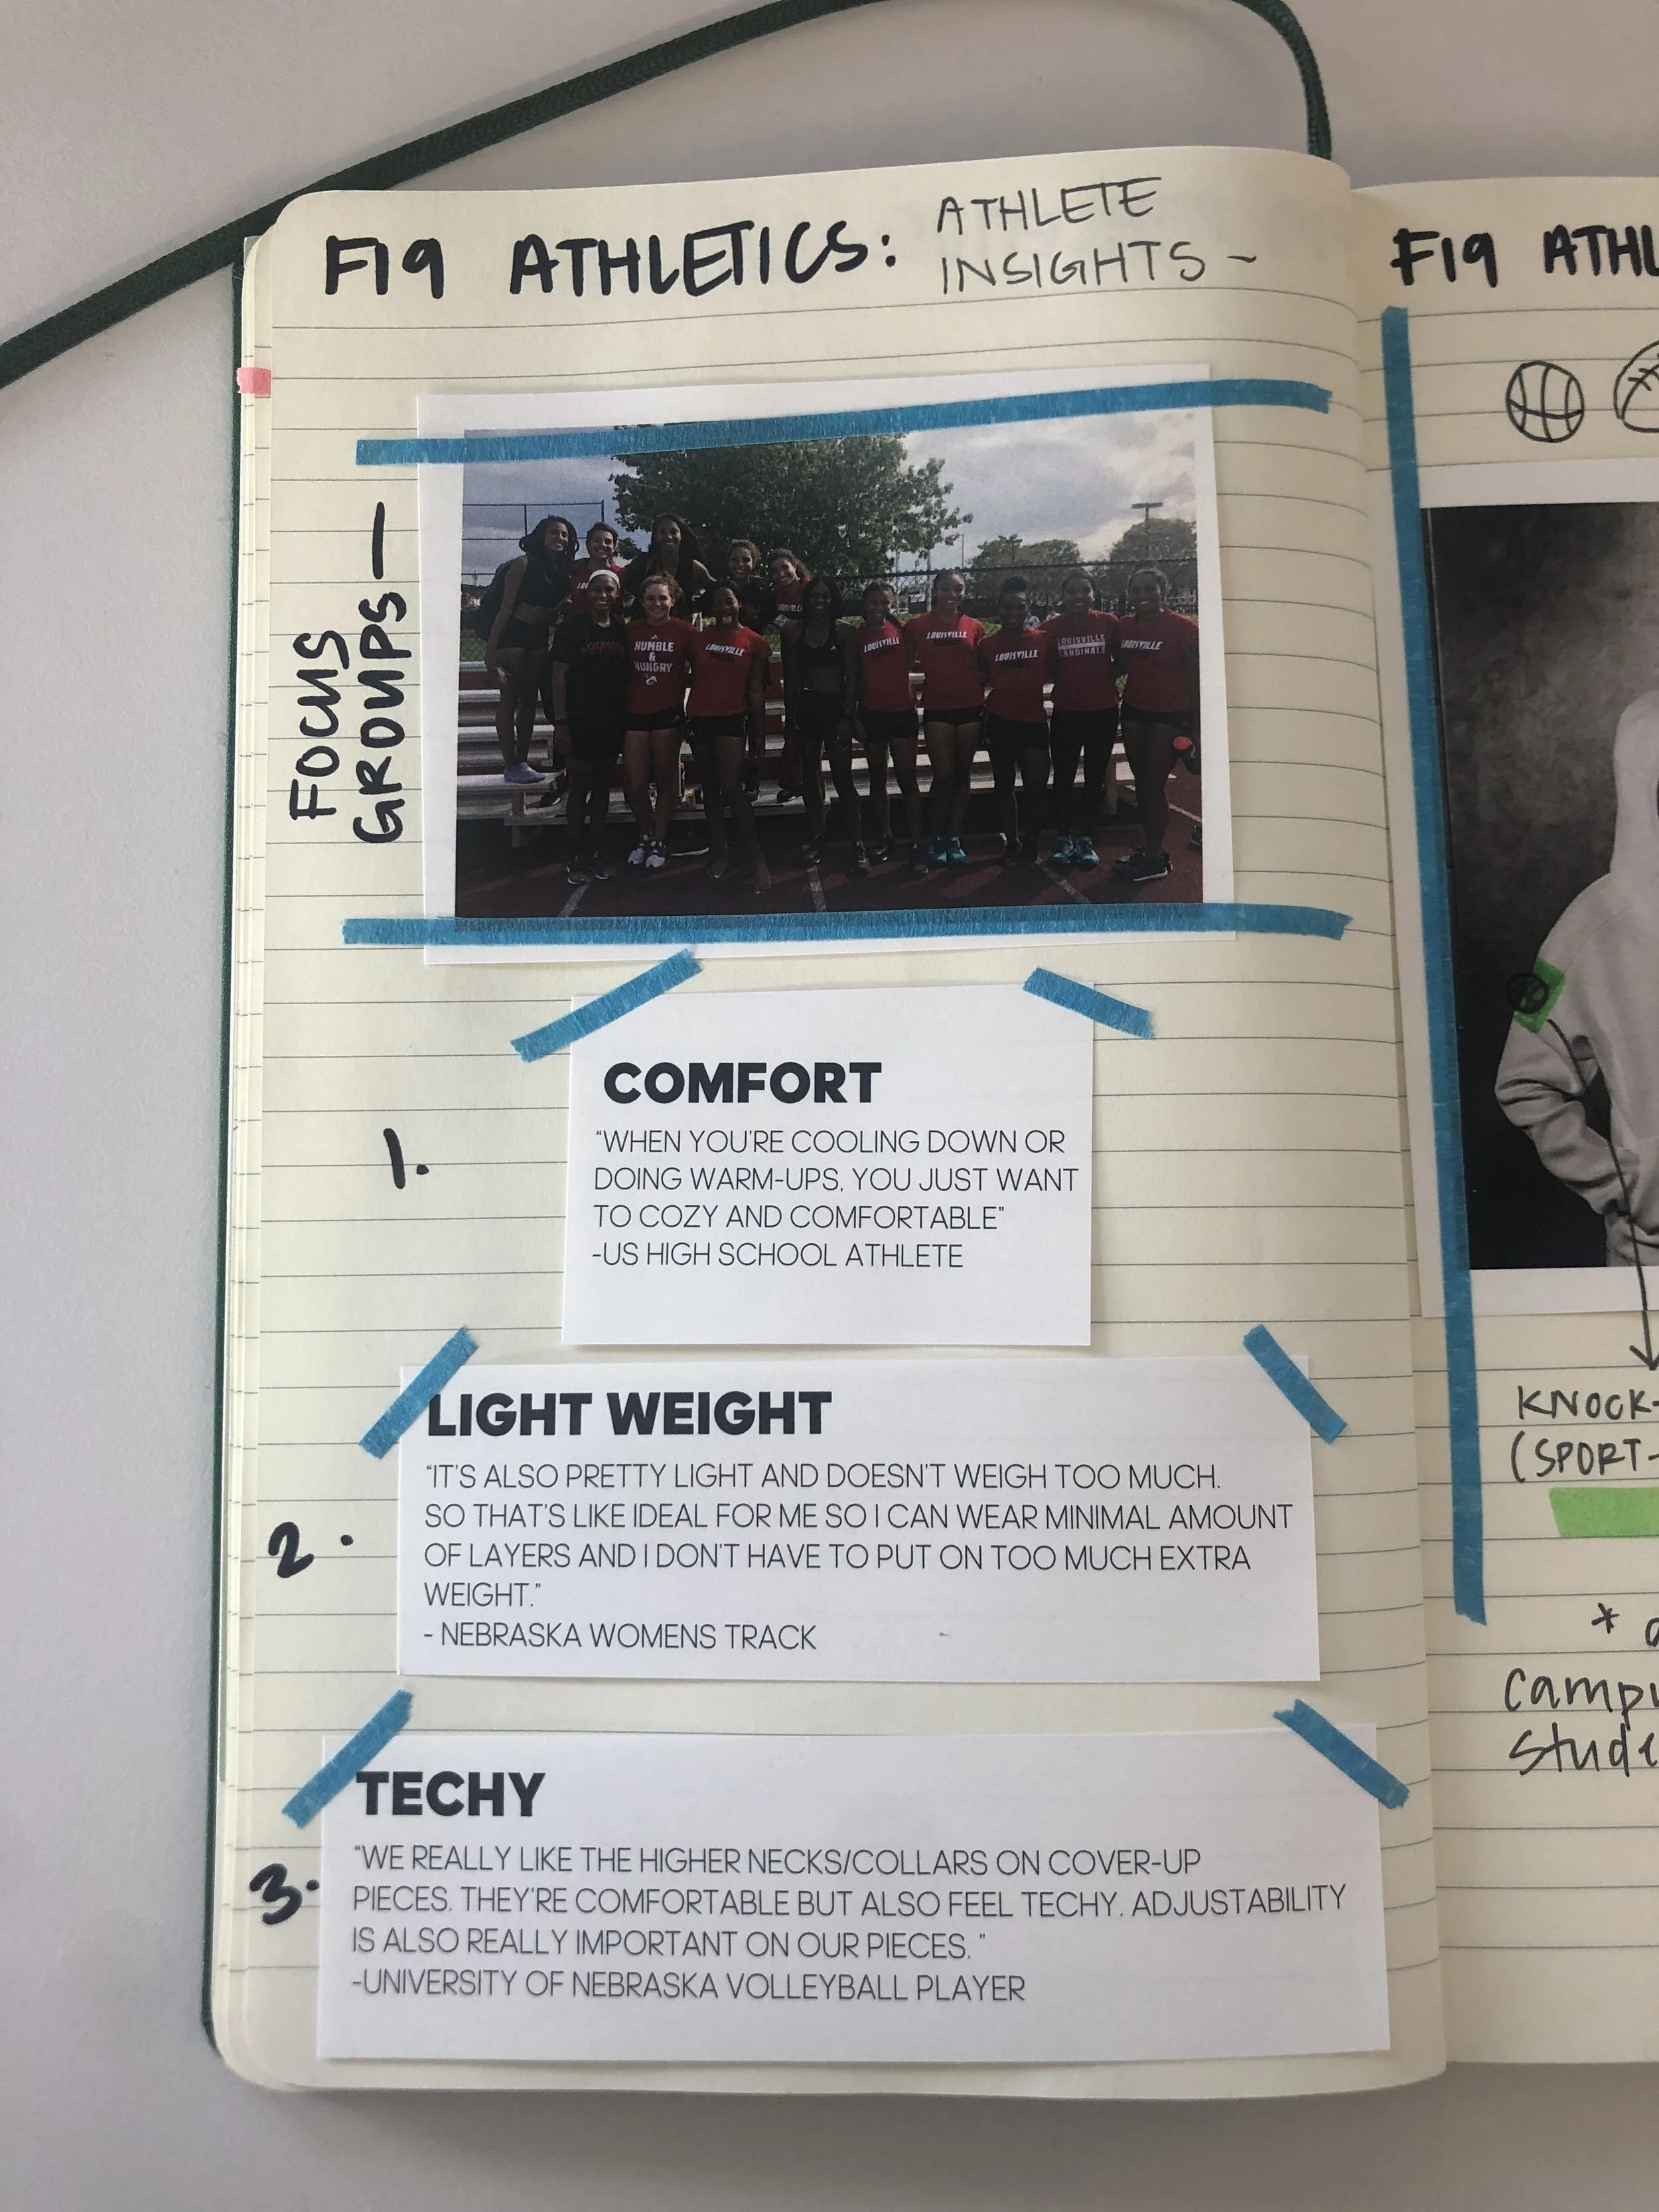 F19 ATHLETICS: ATHLETE
INSIGHTS ~
FOCUS
GROUPS —
HUMBLE
&
HUNGRY
LOUISVILLE
LOUISVILLE
LOUISVILLE
LOUISVILLE
LOUISVILLE
CARDINALS
LOUISVILLE
1.
COMFORT
"WHEN YOU'RE COOLING DOWN OR
DOING WARM-UPS, YOU JUST WANT
TO COZY AND COMFORTABLE"
-US HIGH SCHOOL ATHLETE
2.
LIGHT WEIGHT
"IT'S ALSO PRETTY LIGHT AND DOESN'T WEIGH TOO MUCH.
SO THAT'S LIKE IDEAL FOR ME SO I CAN WEAR MINIMAL AMOUNT
OF LAYERS AND I DON'T HAVE TO PUT ON TOO MUCH EXTRA
WEIGHT."
- NEBRASKA WOMENS TRACK
3.
TECHY
"WE REALLY LIKE THE HIGHER NECKS/COLLARS ON COVER-UP
PIECES. THEY'RE COMFORTABLE BUT ALSO FEEL TECHY. ADJUSTABILITY
IS ALSO REALLY IMPORTANT ON OUR PIECES. "
-UNIVERSITY OF NEBRASKA VOLLEYBALL PLAYER
F19 ATHL
KNOCK-
(SPORT-
*
campu
stude